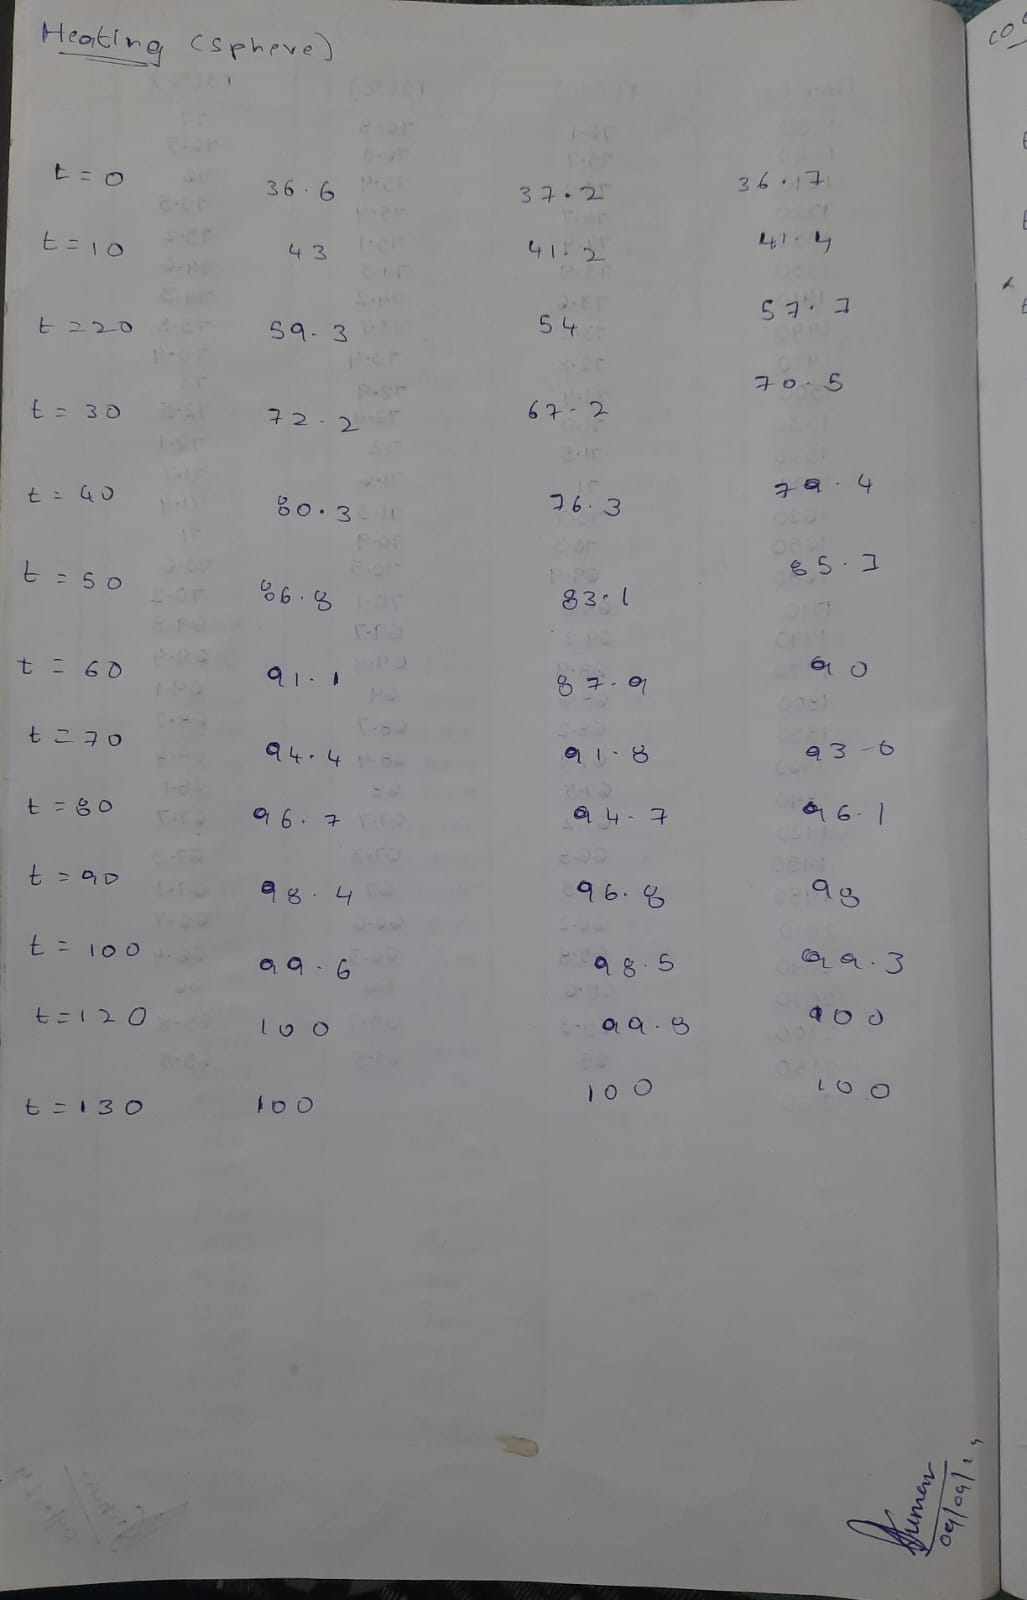 Heating (sphere)
t = 0 36.6 37.2 36.17
t = 10 43 41.2 41.4
t = 20 59.3 54 57.7
t = 30 72.2 67.2 70.5
t = 40 80.3 76.3 79.4
t = 50 86.8 83.1 85.7
t = 60 91.1 87.9 90
t = 70 94.4 91.8 93.6
t = 80 96.7 94.7 96.1
t = 90 98.4 96.8 98
t = 100 99.6 98.5 99.3
t = 120 100 99.8 100
t = 130 100 100 100